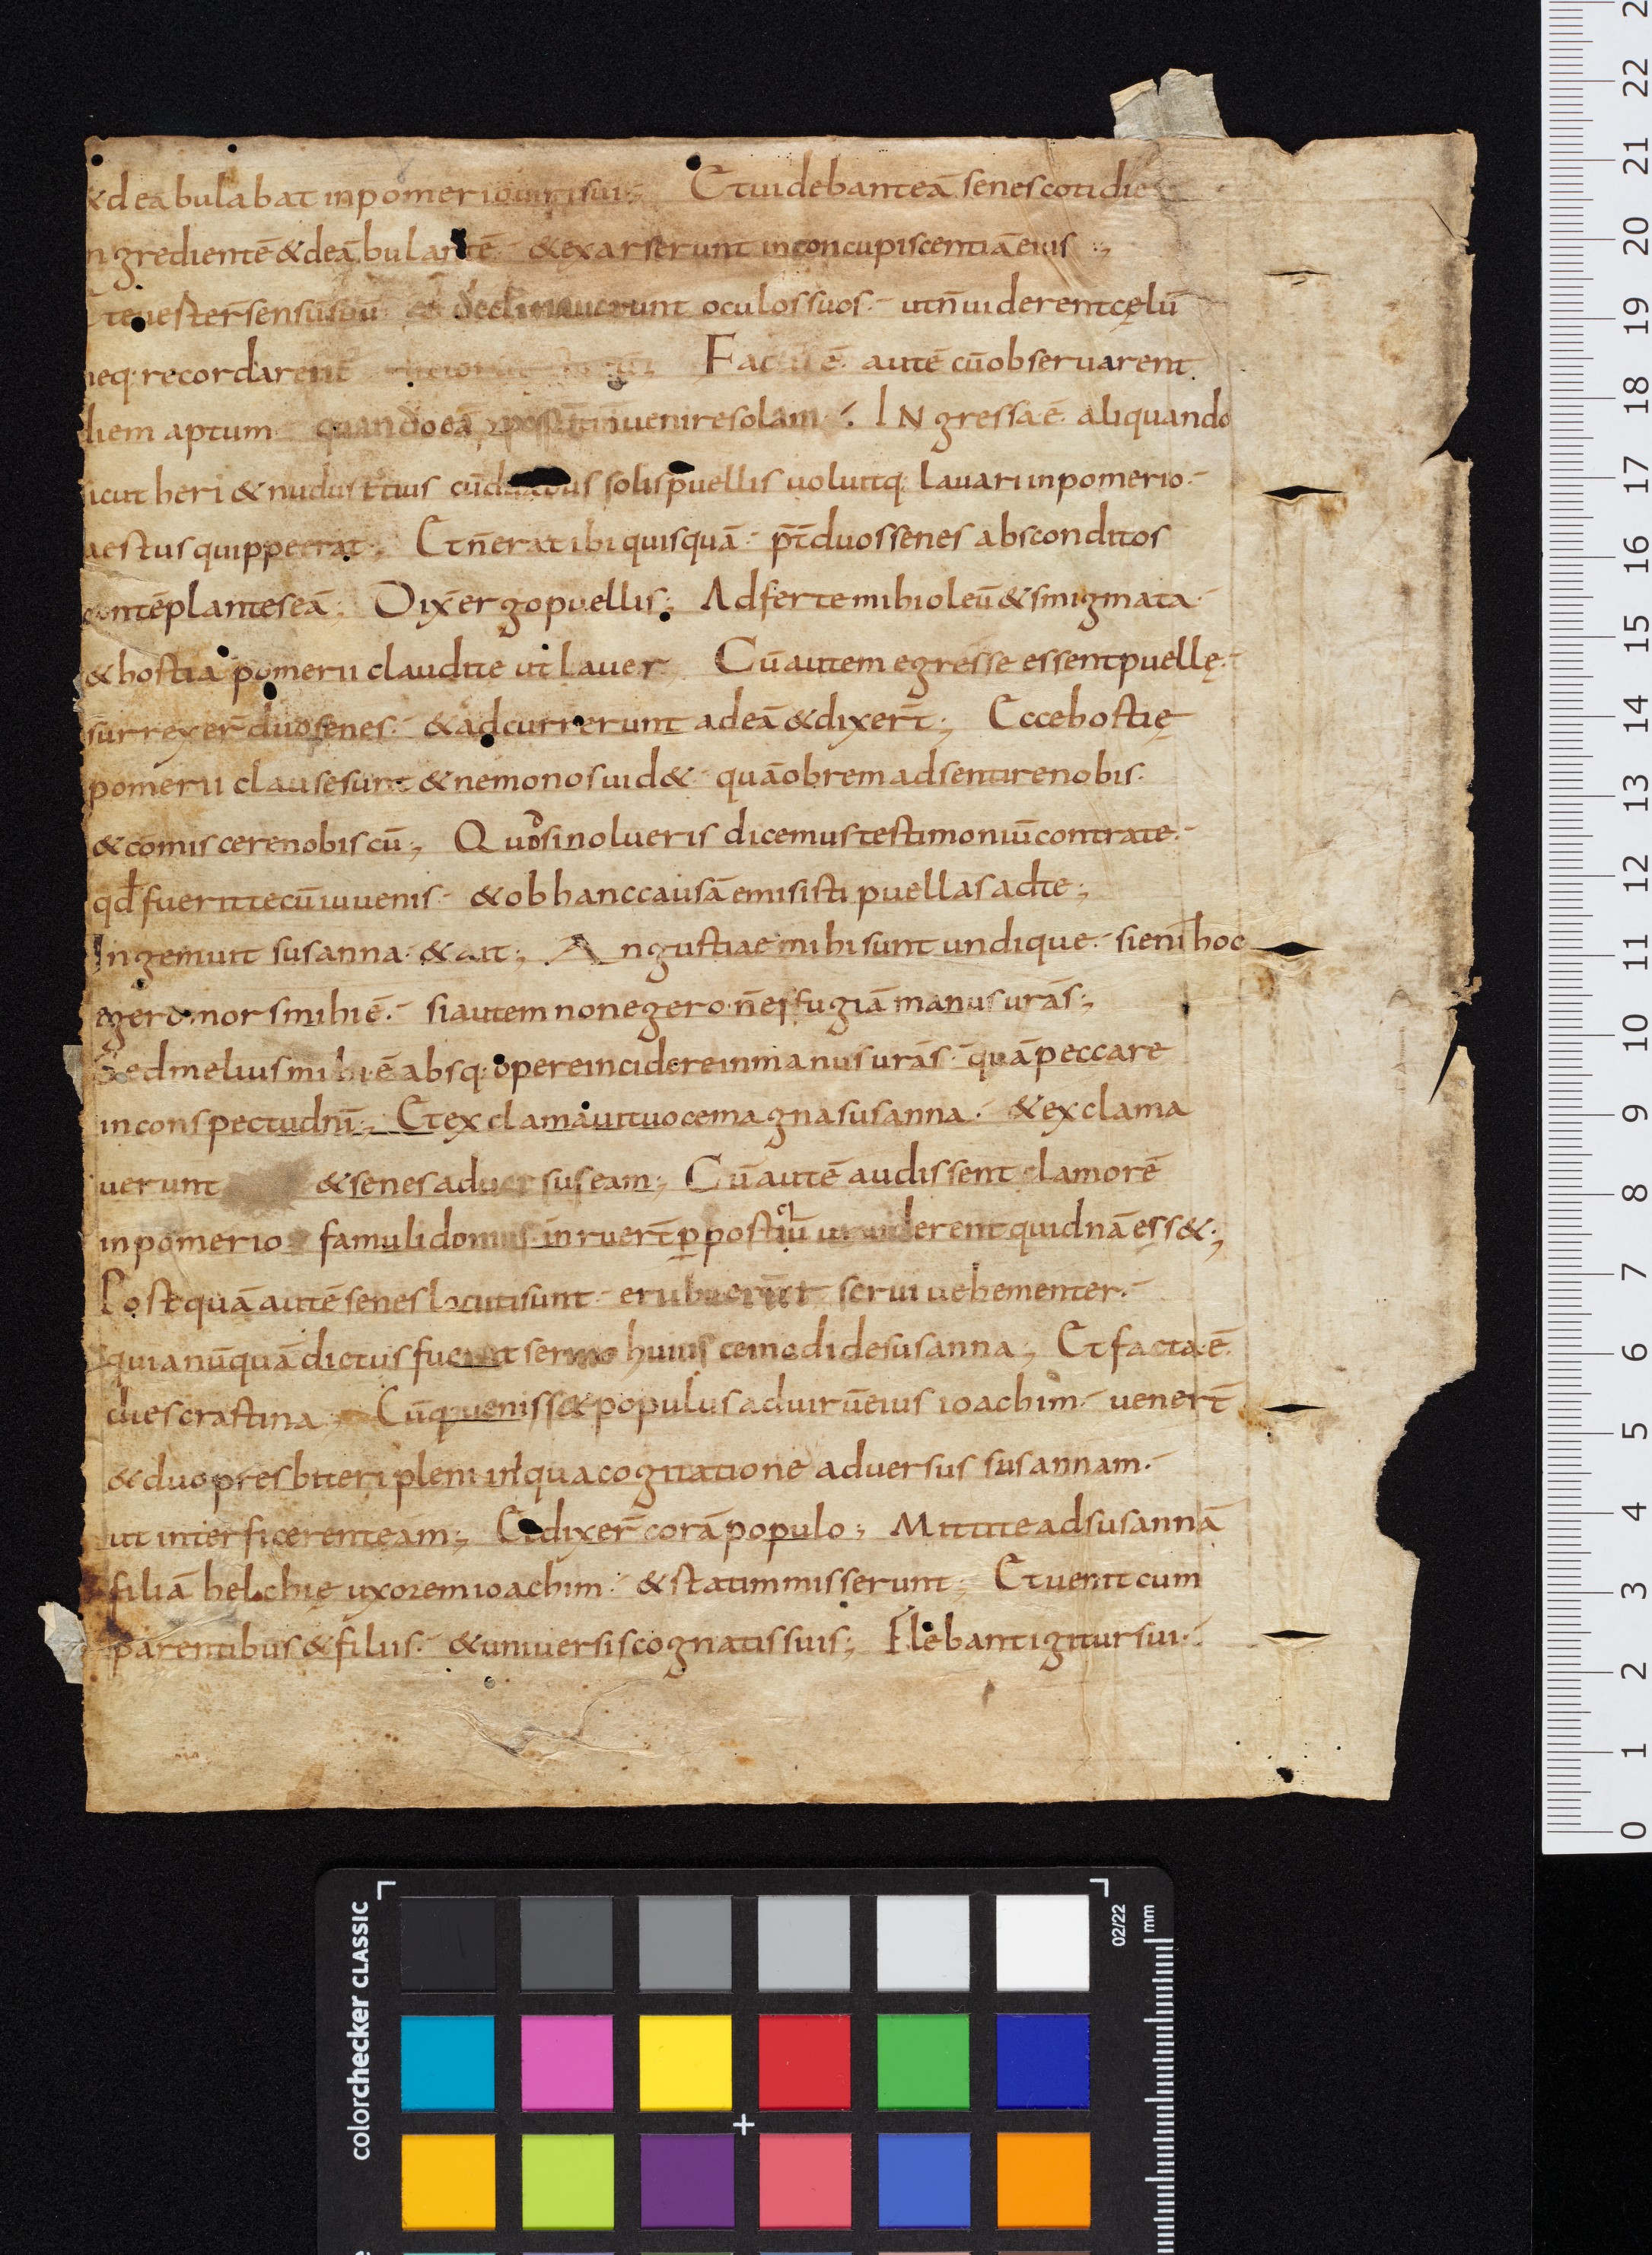 &deābulabat inpomerio uiri sui; Et uidebant eā senes cotidie
ngredientē & deābulantē & exarserunt inconcupiscentiā eius;
t euester̄ sensūsuū & declinauerunt oculos suos ut n̄ uiderent cęlū
neq; recordarent Factū ē autē cū obseruarent
diem aptum quando eā possent inuenire solam; INgressa ē aliquando
icut heri & nudustertius cū duabus solis puellis uoluitq; lauari inpomerio
aestus quippe erat; Et n̄ erat ibi quisquā p̄t duos senes absconditos
contēplantes eā; Dix̄ ergo puellis; Adferte mihi oleū & smigmata
& hostia pomerii claudite ut lauer; Cū autem egresse essent puellę
surrexer̄ duo senes & adcurrerunt ad eā & dixer̄t; Ecce hostię
pomerii clause sunt & nemo nos uid& quāobrem adsentire nobis
& cōmiscere nobiscū; Quod si nolueris dicemus testimoniū contra te
qd̄ fuerit tecū iuuenis & ob hanc causā emisisti puellas a dte;
Ingemuit susanna & ait; Angustiae mihi sunt undique si eni hoc
egero mors mihi ē si autem non egero n̄ effugiā manus urās;
Sed melius mihi ē absq; opere incidere inmanus urās quā peccare
inconspectu dn̄i; Et exclamauit uoce magna susanna & exclama
uerunt & senes aduersus eam; Cū autē audissent clamorē
inpomerio famuli domus inruer̄t p posticū ut uiderent quidnā ess&;
Postquā autē senes locuti sunt erubuerunt serui uehementer
quia nūquā dictus fuerat sermo huiuscemodi de susanna; Et facta ē
dies crastina; Cūq; ueniss& populus ad uirū eius ioachim uener̄t
& duo presbiteri pleni iniqua cogitatione aduersus susannam
ut interficerent eam; Et dixer̄ corā populo; Mittite ad susannā
filiā helchię uxorem ioachim & statim misserunt; Et uenit cum
parentibus & filiis & uniuersis cognatis suis; Flebant igitur sui
0 1 2 3 4 5 6 7 8 9 10 11 12 13 14 15 16 17 18 19 20 21 22 2
colorchecker CLASSIC
02/22
mm